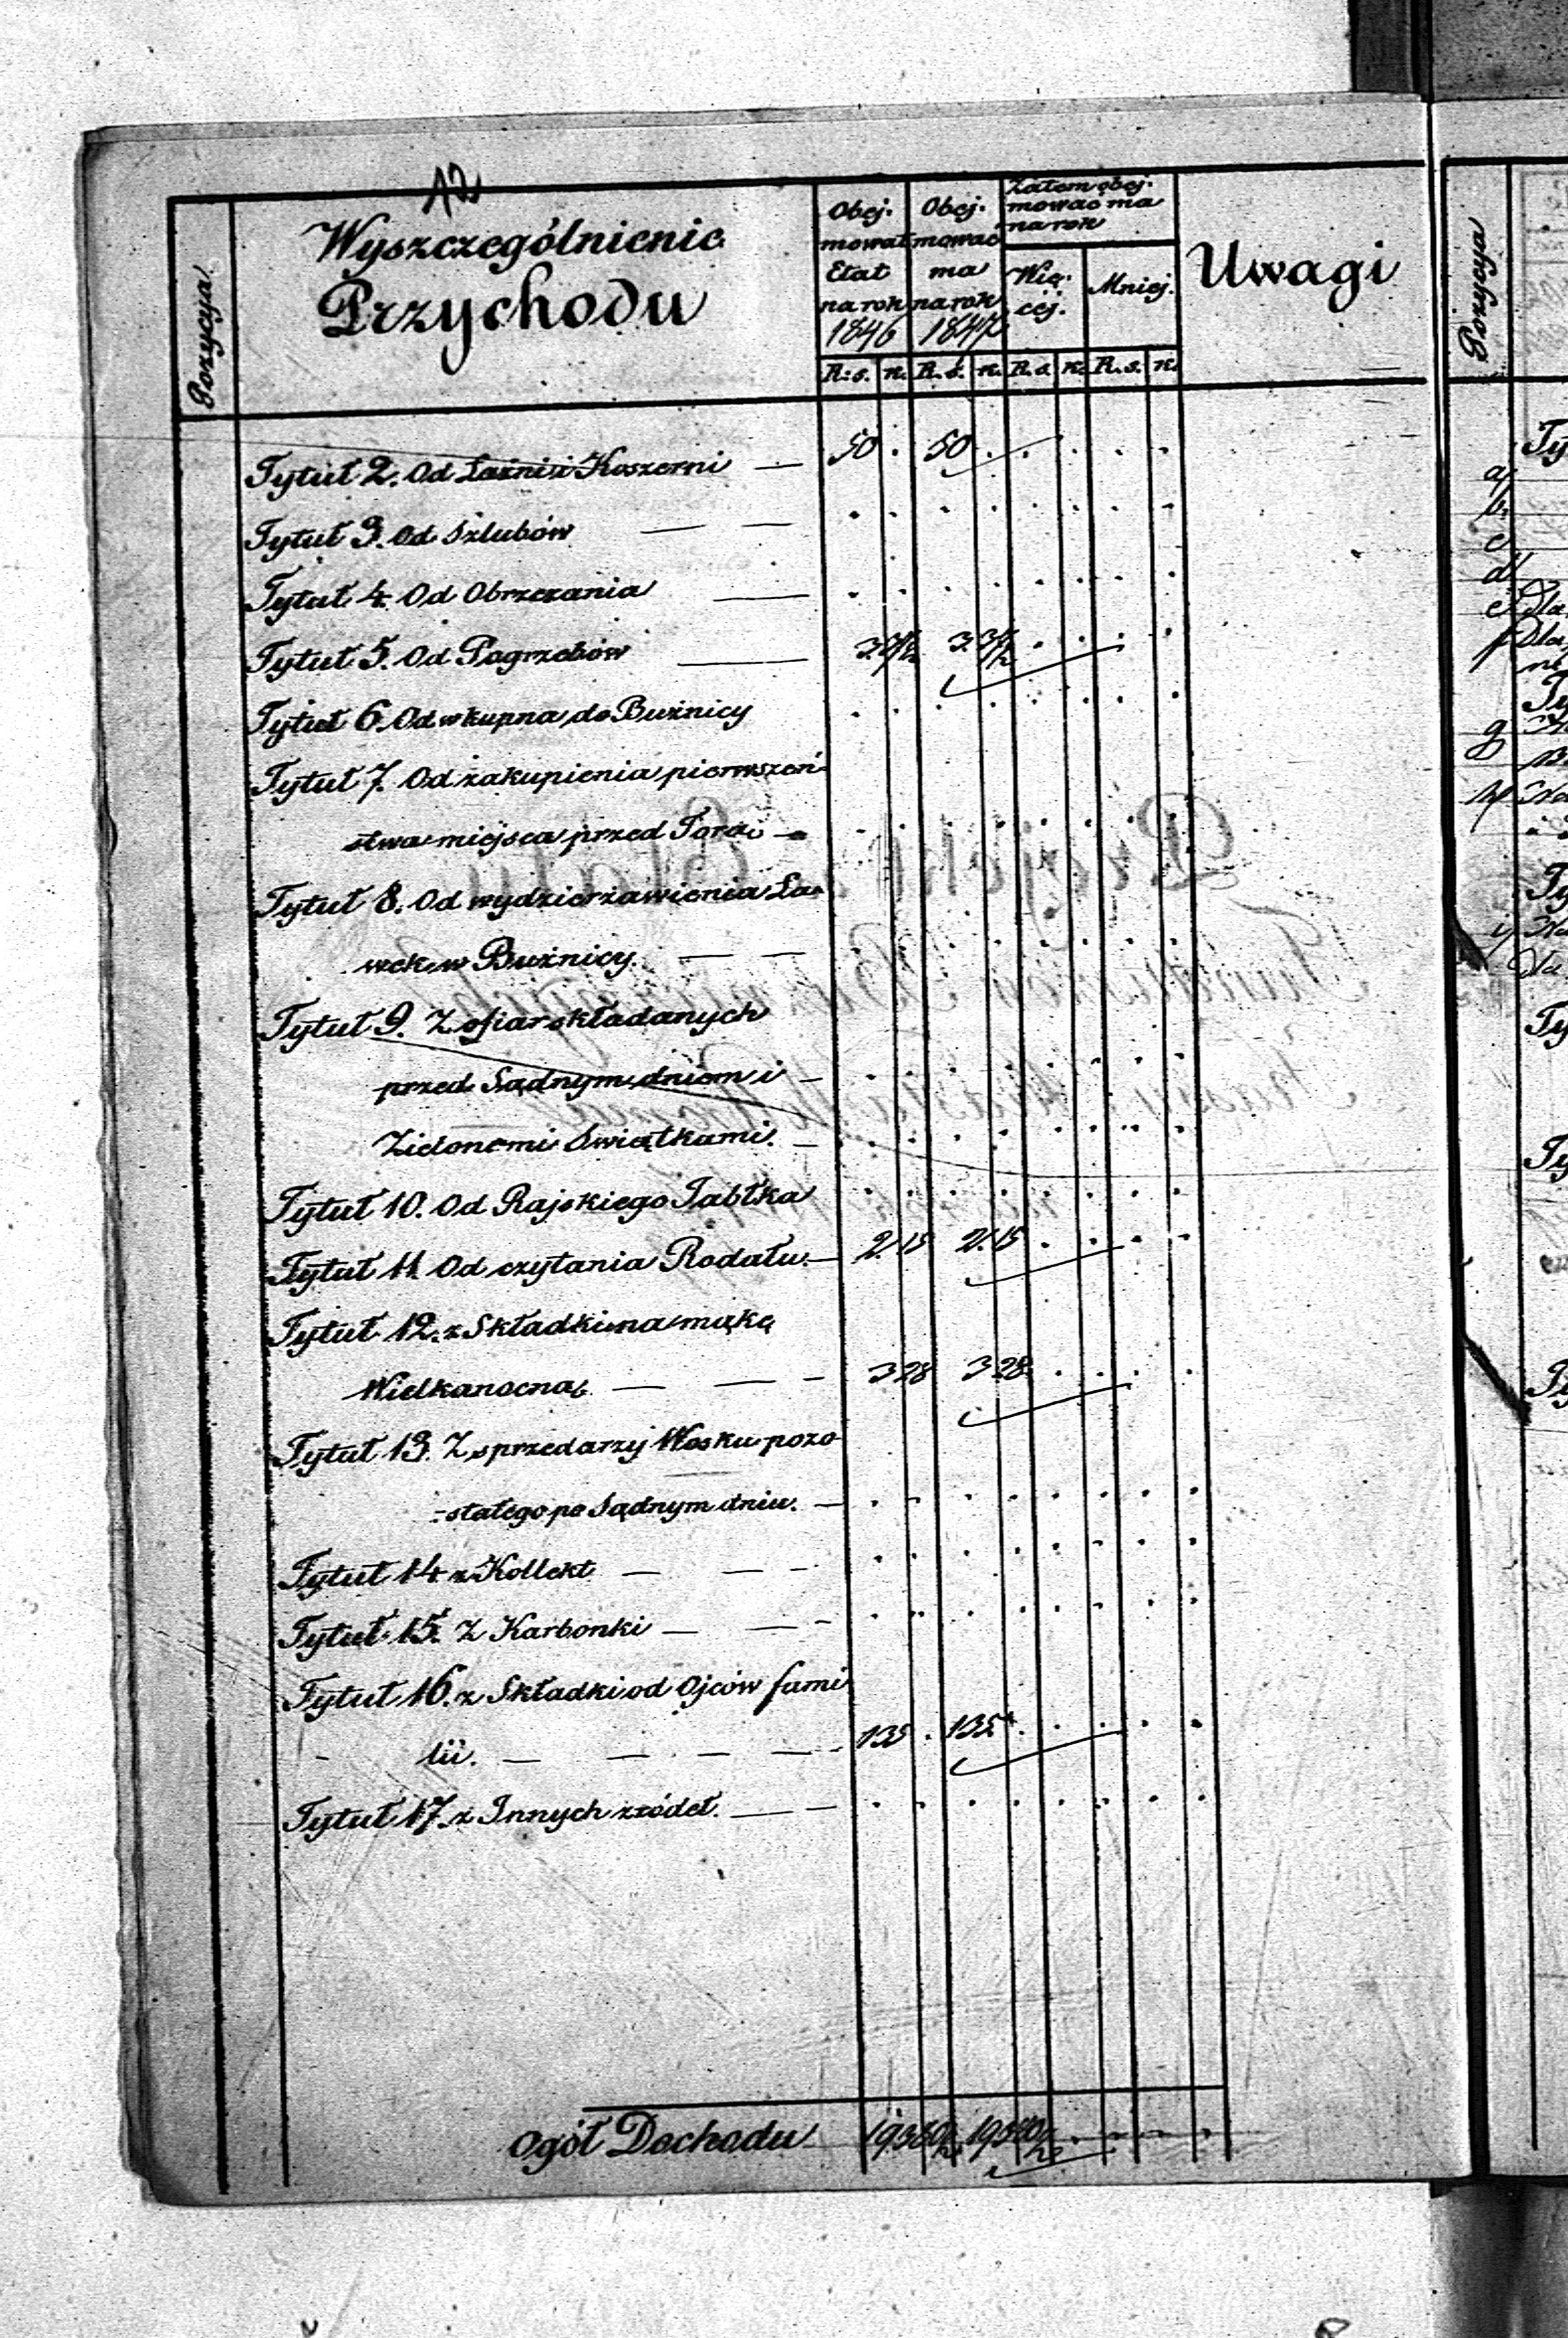 12
Pozycya
Wyszczególnienie
Przychodu
Obej-
mował
Etat
na rok
1846
Obej-
mować
ma
na rok
1847
Zatem obej-
mować ma
na rok
Wię-
cej.
Mniej.
Uwagi
R. s. k. R. s. k. R. s. k. R. s. k.
Tytuł 2. Od Łaźni i Koszerni — 50 . 50 . . . . .
Tytuł 3. Od Szlubów — — . . . . . . . .
Tytuł 4. Od Obrzezania — . . . . . . . .
Tytuł 5. Od Pogrzebów — 3. 3.
Tytuł 6. Od wkupna do Bużnicy . . . . . . . .
Tytuł 7. Od zakupienia pierwszeń-
stwa miejsca przed Torą — . . . . . . . .
Tytuł 8. Od wydzierżawienia Ła-
wek w Bużnicy. — — . . . . . . . .
Tytuł 9. Z ofiar składanych
przed Sądnym dniem i — . . . . . . . .
Zielonemi Swiątkami. — . . . . . . . .
Tytuł 10. Od Rajskiego Jabłka . . . . . . . .
Tytuł 11. Od czytania Rodału. — 2. 15 2. 15 . . . .
Tytuł 12. z Składki na mąkę
Wielkanocną — — - 3 28 3 28. . . . .
Tytuł 13. Z sprzedarzy Wosku pozo
-stałego po Sądnym dniu. — . . . . . . . .
Tytuł 14 z Kollekt — — - . . . . . . . .
Tytuł 15. Z Karbonki — — - . . . . . . . .
Tytuł 16. z Składki od Ojców fami
lii. — — — — 135 . 135 . . . . .
Tytuł 17. z Innych zródeł. — — . . . . . . . .
Ogół Dochodu
Pozycya
a/
b.
c
d
e Dla
f Dla
Ty
g
h/
Ty
i/
Dla
Ty
Ty
Ty